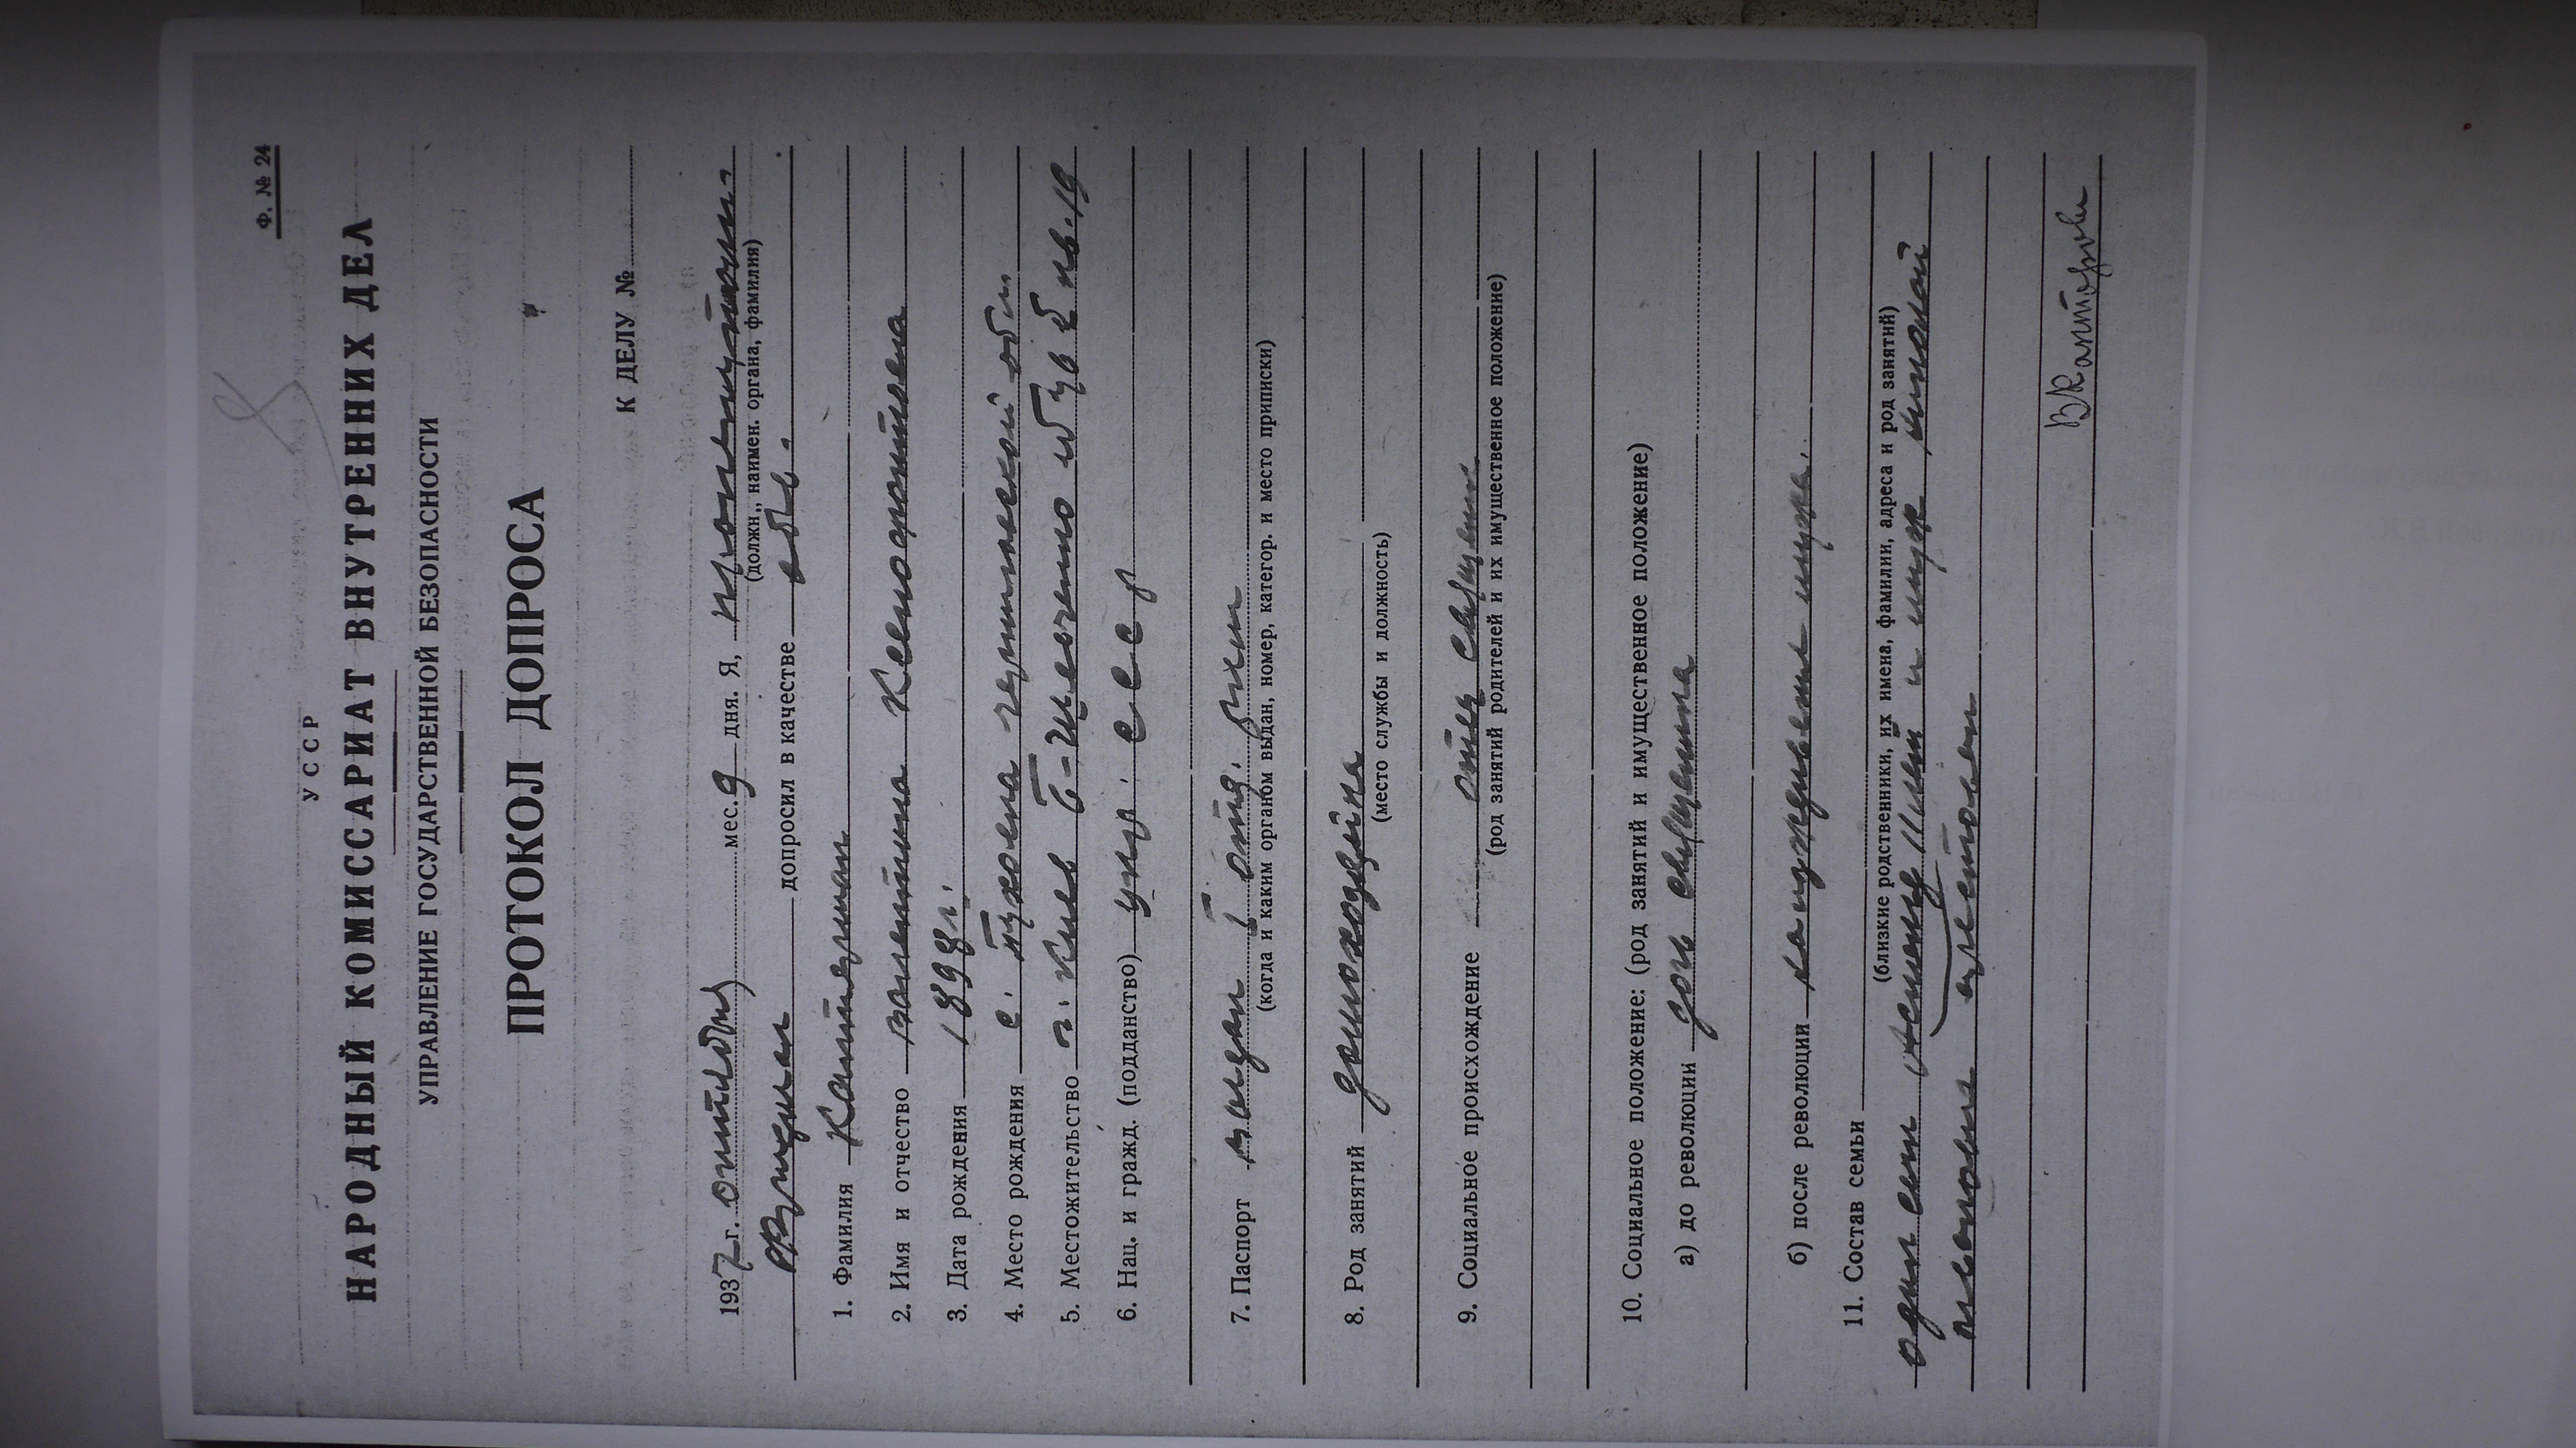 Ф. № 24
УССР
НАРОДНЫЙ КОМИССАРИАТ ВНУТРЕННИХ ДЕЛ
УПРАВЛЕНИЕ ГОСУДАРСТВЕННОЙ БЕЗОПАСНОСТИ
ПРОТОКОЛ ДОПРОСА
К ДЕЛУ №
1937 г. октября мес. 9 дня. Я,
(должн., наимен. органа, фамилия)
допросил в качестве обв.
1. Фамилия
2. Имя и отчество Валентина Ксенофонтовна
3. Дата рождения 1898 г.
4. Место рождения с. области
5. Местожительство г. Киев кв. 19
6. Нац. и гражд. (подданство) укр. СССР
7. Паспорт выдан
(когда и каким органом выдан, номер, категор. и место приписки)
8. Род занятий домохозяйка
(место службы и должность)
9. Социальное происхождение отец священник
(род занятий родителей и их имущественное положение)
10. Социальное положение: (род занятий и имущественное положение)
а) до революции дочь священника
б) после революции на иждивении мужа.
11. Состав семьи
(близкие родственники, их имена, фамилии, адреса и род занятий)
один сын лет и муж
арестован